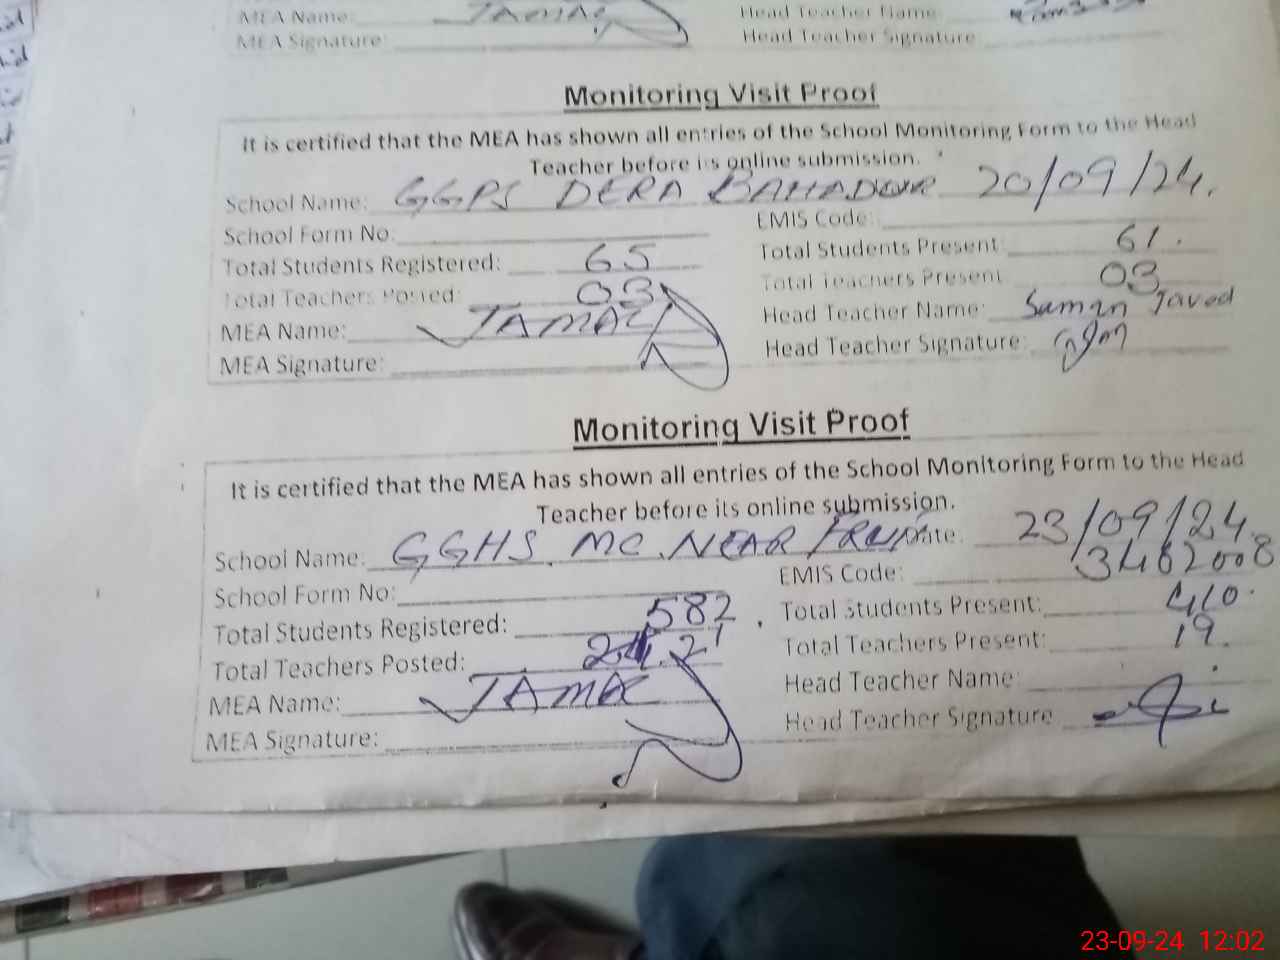 MEA Name: JAMAL Head Teacher Name
MEA Signature: Head Teacher Signature
Monitoring Visit Proof
It is certified that the MEA has shown all entries of the School Monitoring Form to the Head
Teacher before its online submission.
School Name: GGPS DERA BAHADUR 20/09/24.
School Form No: EMIS Code:
Total Students Registered: 65 Total Students Present: 61.
Total Teachers Posted: 03 Total Teachers Present 03
MEA Name: JAMAL Head Teacher Name: Suman Javed
MEA Signature: Head Teacher Signature:
Monitoring Visit Proof
It is certified that the MEA has shown all entries of the School Monitoring Form to the Head
Teacher before its online submission.
School Name: GGHS MC NEAR Date. 23/09/24.
School Form No: EMIS Code: 34620008
Total Students Registered: 582 Total Students Present: 410.
Total Teachers Posted: 21 Total Teachers Present: 19.
MEA Name: JAMAL Head Teacher Name:
MEA Signature: Head Teacher Signature
23-09-24 12:02